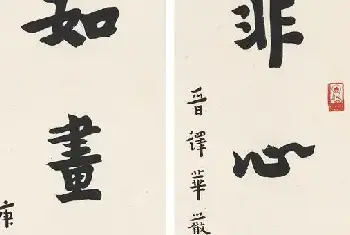 非心
晉譯華嚴
如畫